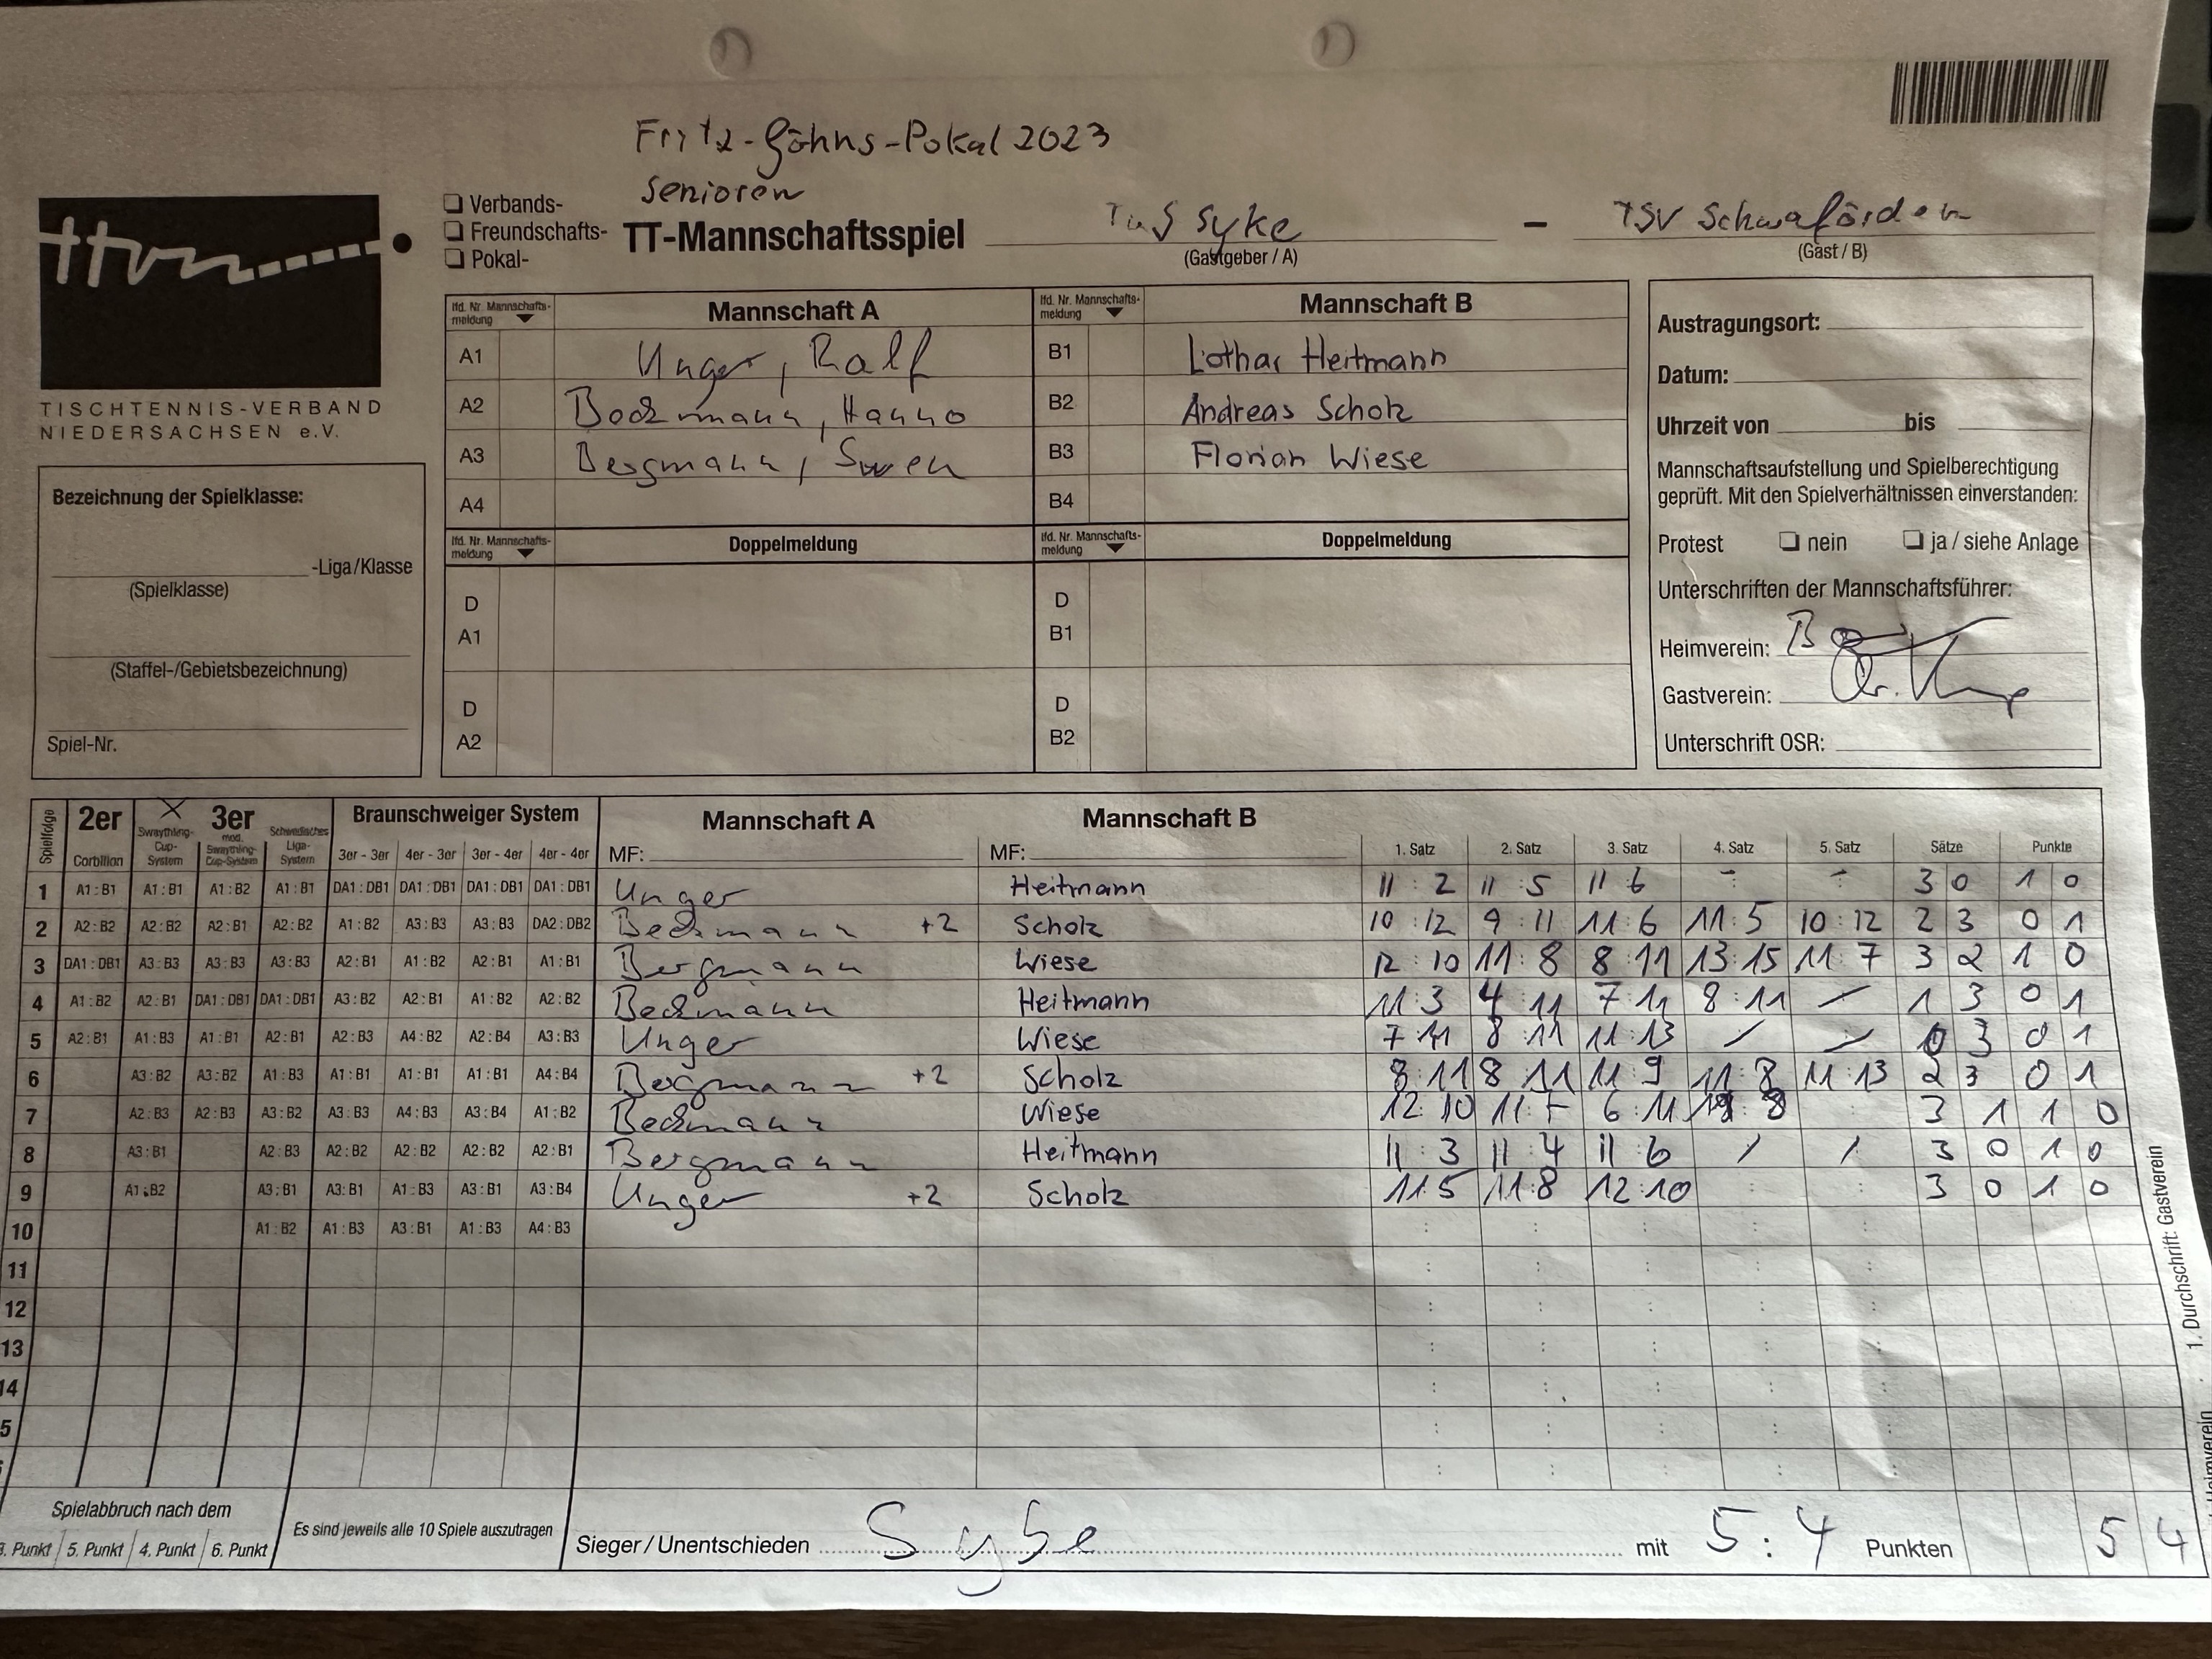 Fritz-Göhns-Pokal 2023
Senioren
ttvn
TISCHTENNIS-VERBAND
NIEDERSACHSEN e.V.
❑ Verbands-
❑ Freundschafts-
❑ Pokal-
TT-Mannschaftsspiel TuS Syke – TSV Schwaförden
(Gastgeber / A) (Gast / B)
Bezeichnung der Spielklasse:
-Liga/Klasse
(Spielklasse)
(Staffel-/Gebietsbezeichnung)
Spiel-Nr.
lfd. Nr. Mannschafts-meldung Mannschaft A lfd. Nr. Mannschafts-meldung Mannschaft B
A1 Unger, Ralf B1 Lothar Heitmann
A2 Beckmann, Hanno B2 Andreas Scholz
A3 Bergmann, Swen B3 Florian Wiese
A4 B4
lfd. Nr. Mannschafts-meldung Doppelmeldung lfd. Nr. Mannschafts-meldung Doppelmeldung
D A1 D B1
D A2 D B2
Austragungsort:
Datum:
Uhrzeit von bis
Mannschaftsaufstellung und Spielberechtigung
geprüft. Mit den Spielverhältnissen einverstanden:
Protest ❑ nein ❑ ja / siehe Anlage
Unterschriften der Mannschaftsführer:
Heimverein:
Gastverein:
Unterschrift OSR:
Spielfolge 2er X 3er Braunschweiger System Mannschaft A Mannschaft B
Corbillan Swaythling-Cup-System mod. Swaythling-Cup-System Schwedisches Liga-System 3er - 3er 4er - 3er 3er - 4er 4er - 4er MF: MF: 1. Satz 2. Satz 3. Satz 4. Satz 5. Satz Sätze Punkte
1 A1 : B1 A1 : B1 A1 : B2 A1 : B1 DA1 : DB1 DA1 : DB1 DA1 : DB1 DA1 : DB1 Unger Heitmann 11 : 2 11 : 5 11 6 - - 3 0 1 0
2 A2 : B2 A2 : B2 A2 : B1 A2 : B2 A1 : B2 A3 : B3 A3 : B3 DA2 : DB2 Beckmann +2 Scholz 10 : 12 9 : 11 11 : 6 11 : 5 10 : 12 2 3 0 1
3 DA1 : DB1 A3 : B3 A3 : B3 A3 : B3 A2 : B1 A1 : B2 A2 : B1 A1 : B1 Bergmann Wiese 12 : 10 11 : 8 8 : 11 13 : 15 11 : 7 3 2 1 0
4 A1 : B2 A2 : B1 DA1 : DB1 DA1 : DB1 A3 : B2 A2 : B1 A1 : B2 A2 : B2 Beckmann Heitmann 11 : 3 4 : 11 7 : 11 8 : 11 / 1 3 0 1
5 A2 : B1 A1 : B3 A1 : B1 A2 : B1 A2 : B3 A4 : B2 A2 : B4 A3 : B3 Unger Wiese 7 : 11 8 : 11 11 : 13 / / 0 3 0 1
6 A3 : B2 A3 : B2 A1 : B3 A1 : B1 A1 : B1 A1 : B1 A4 : B4 Bergmann +2 Scholz 8 : 11 8 : 11 11 : 9 11 : 8 11 : 13 2 3 0 1
7 A2 : B3 A2 : B3 A3 : B2 A3 : B3 A4 : B3 A3 : B4 A1 : B2 Beckmann Wiese 12 : 10 11 : 7 6 : 11 : 8 3 1 1 0
8 A3 : B1 A2 : B3 A2 : B2 A2 : B2 A2 : B2 A2 : B1 Bergmann Heitmann 11 : 3 11 : 4 11 : 6 / / 3 0 1 0
9 A1 : B2 A3 : B1 A3 : B1 A1 : B3 A3 : B1 A3 : B4 Unger +2 Scholz 11:5 11:8 12:10 3 0 1 0
10 A1 : B2 A1 : B3 A3 : B1 A1 : B3 A4 : B3
11
12
13
14
5
Spielabbruch nach dem
. Punkt / 5. Punkt / 4. Punkt / 6. Punkt
Es sind jeweils alle 10 Spiele auszutragen
Sieger / Unentschieden Syke mit 5 : 4 Punkten 5 4
1. Durchschrift: Gastverein
Heimverein